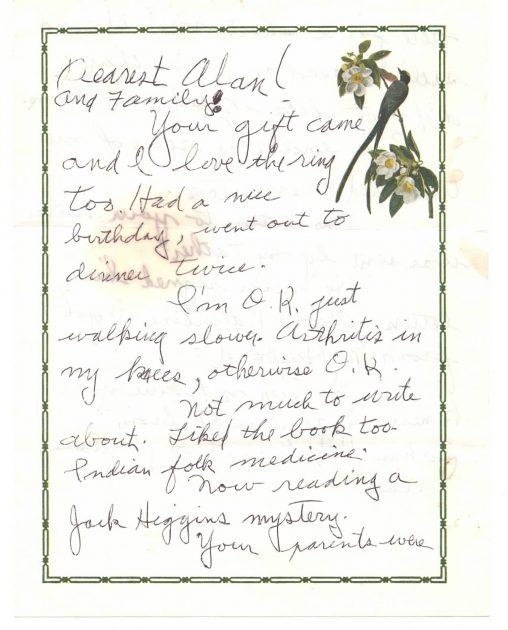 Dearest Alan!
and Family!
Your gift came
and I love the ring
too. Had a nice
birthday, went out to
dinner twice.
I'm O.K. just
walking slower. Arthritis in
my knees, otherwise O.K.
Not much to write
about. Liked the book too-
Indian folk medicine.
Now reading a
Jack Higgins mystery.
Your parents were